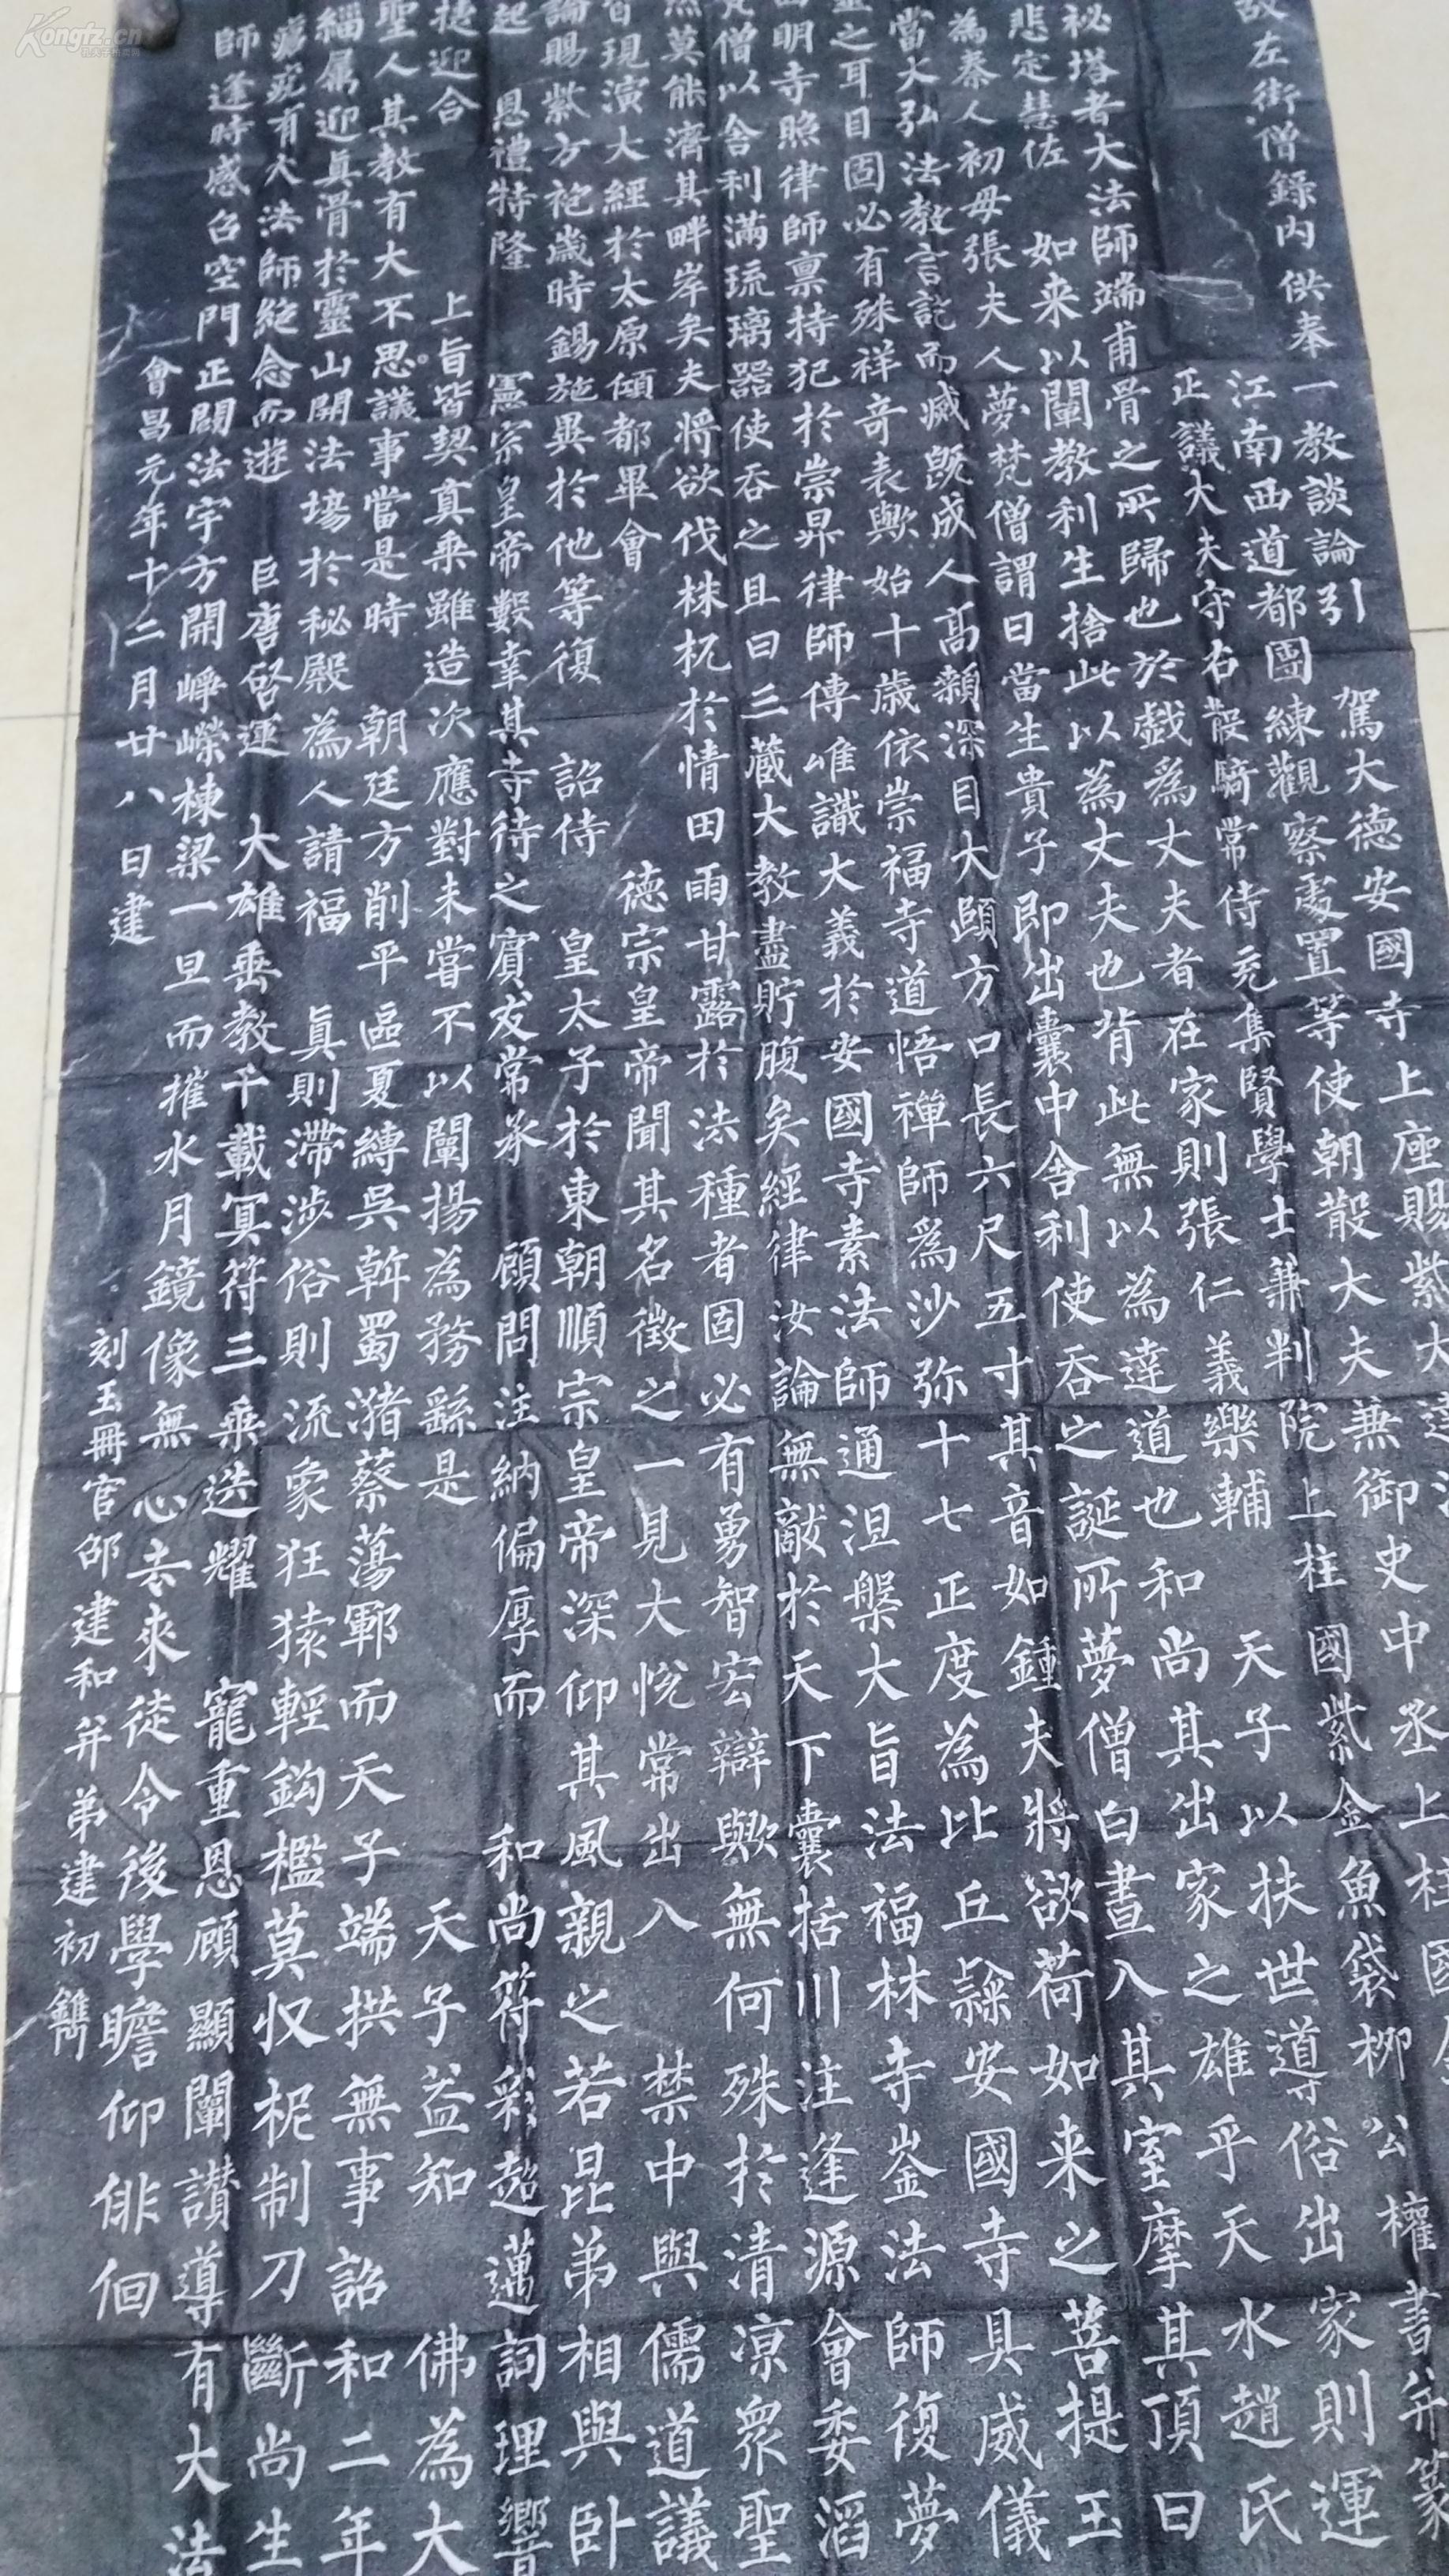 Kongfz.cn
故左街僧錄內供奉三教談論引 駕大德安國寺上座賜紫大達法
江南西道都團練觀察處置等使朝散大夫兼御史中丞上柱國
正議大夫守右散騎常侍充集賢學士兼判院上柱國紫金魚袋柳公權書并篆
秘塔者大法師端甫骨之所歸也於戲為丈夫者在家則張仁義樂輔 天子以扶世導俗出家則運
悲定慧佐 如来以闡教利生捨此以為丈夫也背此無以為達道也和尚其出家之雄乎天水趙氏
為秦人初母張夫人夢梵僧謂曰當生貴子即出囊中舍利使吞之誕所夢僧白晝入其室摩其頂曰
當大弘法教言訖而滅既成人高顙深目大頤方口長六尺五寸其音如鍾夫將欲荷如来之菩提玉
靈之耳目固必有殊祥奇表歟始十歲依崇福寺道悟禪師為沙弥十七正度為比丘隸安國寺具威儀
西明寺照律師禀持犯於崇昇律師傳唯識大義於安國寺素法師通涅槃大旨法福林寺崟法師復夢
梵僧以舍利滿琉璃器使吞之且曰三藏大教盡貯腹矣經律汝論無敵於天下囊括川注逢源會委滔
然莫能濟其畔岸矣夫將欲伐株杌於情田雨甘露於法種者固必有勇智宏辯歟無何殊於清凉眾聖
皆現演大經於太原傾都畢會 德宗皇帝聞其名徵之一見大悅常出入禁中與儒道議
論賜紫方袍歲時錫施異於他等復 詔侍 皇太子於東朝順宗皇帝深仰其風親之若昆弟相與卧
起 恩禮特隆 憲宗皇帝數幸其寺待之賓友常承 顧問注納偏厚而 和尚符彩超邁詞理響
捷迎合 上旨皆契真乘雖造次應對未嘗不以闡揚為務繇是 天子益知 佛為大
聖人其教有大不思議事當是時 朝廷方削平區夏縛吳斡蜀瀦蔡蕩鄆而天子端拱無事詔和二年
緇屬迎真骨於靈山開法場於秘殿為人請福 眞則滯涉俗則流象狂猿輕鈎檻莫收柅制刀斷尚生
瘡疣有大法師絕念而遊 巨唐啓運 大雄垂教千載冥符三乘迭耀 寵重恩顧顯闡讃導有大法
師逢時感召空門正闢法宇方開崢嶸棟梁一旦而摧水月鏡像無心去來徒令後學瞻仰徘徊
會昌元年十二月廿八日建
刻玉冊官邵建和并弟建初鐫